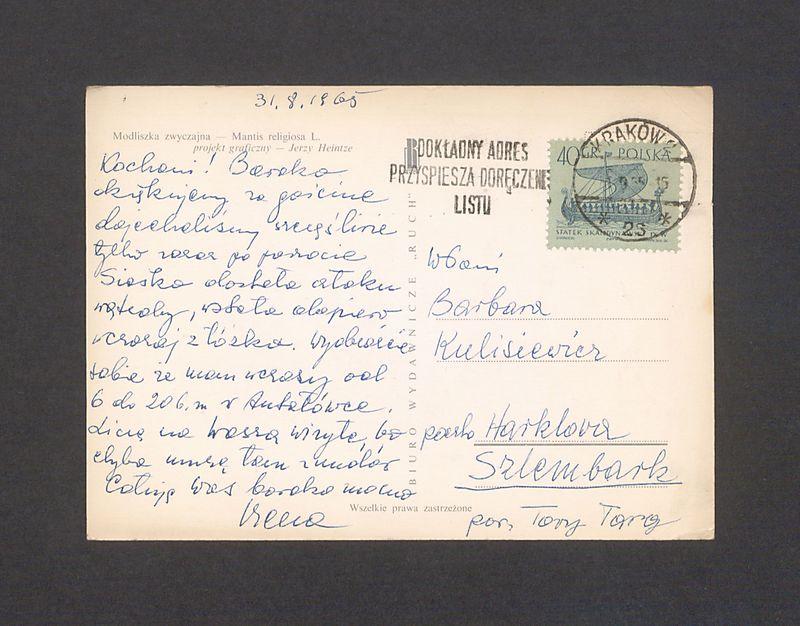 31.8.1965
Modliszka zwyczajna — Mantis religiosa L.
projekt graficzny — Jerzy Heintze
Kochani! Bardzo
dziękujemy za gościnę
dojechaliśmy szczęśliwie
tylko zaraz po powrocie
Siostra dostała ataku
wątroby, wstała dopiero
wczoraj z łóżka.
sobie że mam wczasy od
6 do 20 b.m w Antałówce.
Liczę na Waszą wizytę, bo
chyba umrę tam z nudów
Całuję Was bardzo mocno
Irena
BIURO WYDAWNICZE „RUCH"
DOKŁADNY ADRES
PRZYSPIESZA DORĘCZENIE
LISTU
KRAKÓW 2
9.65.15
* 2S *
40 GR. POLSKA
STATEK SKANDYNAWSKI
WPani
Barbara
Kulisiewicz
poczta Harklowa
Szlembark
pow. Nowy Targ
Wszelkie prawa zastrzeżone